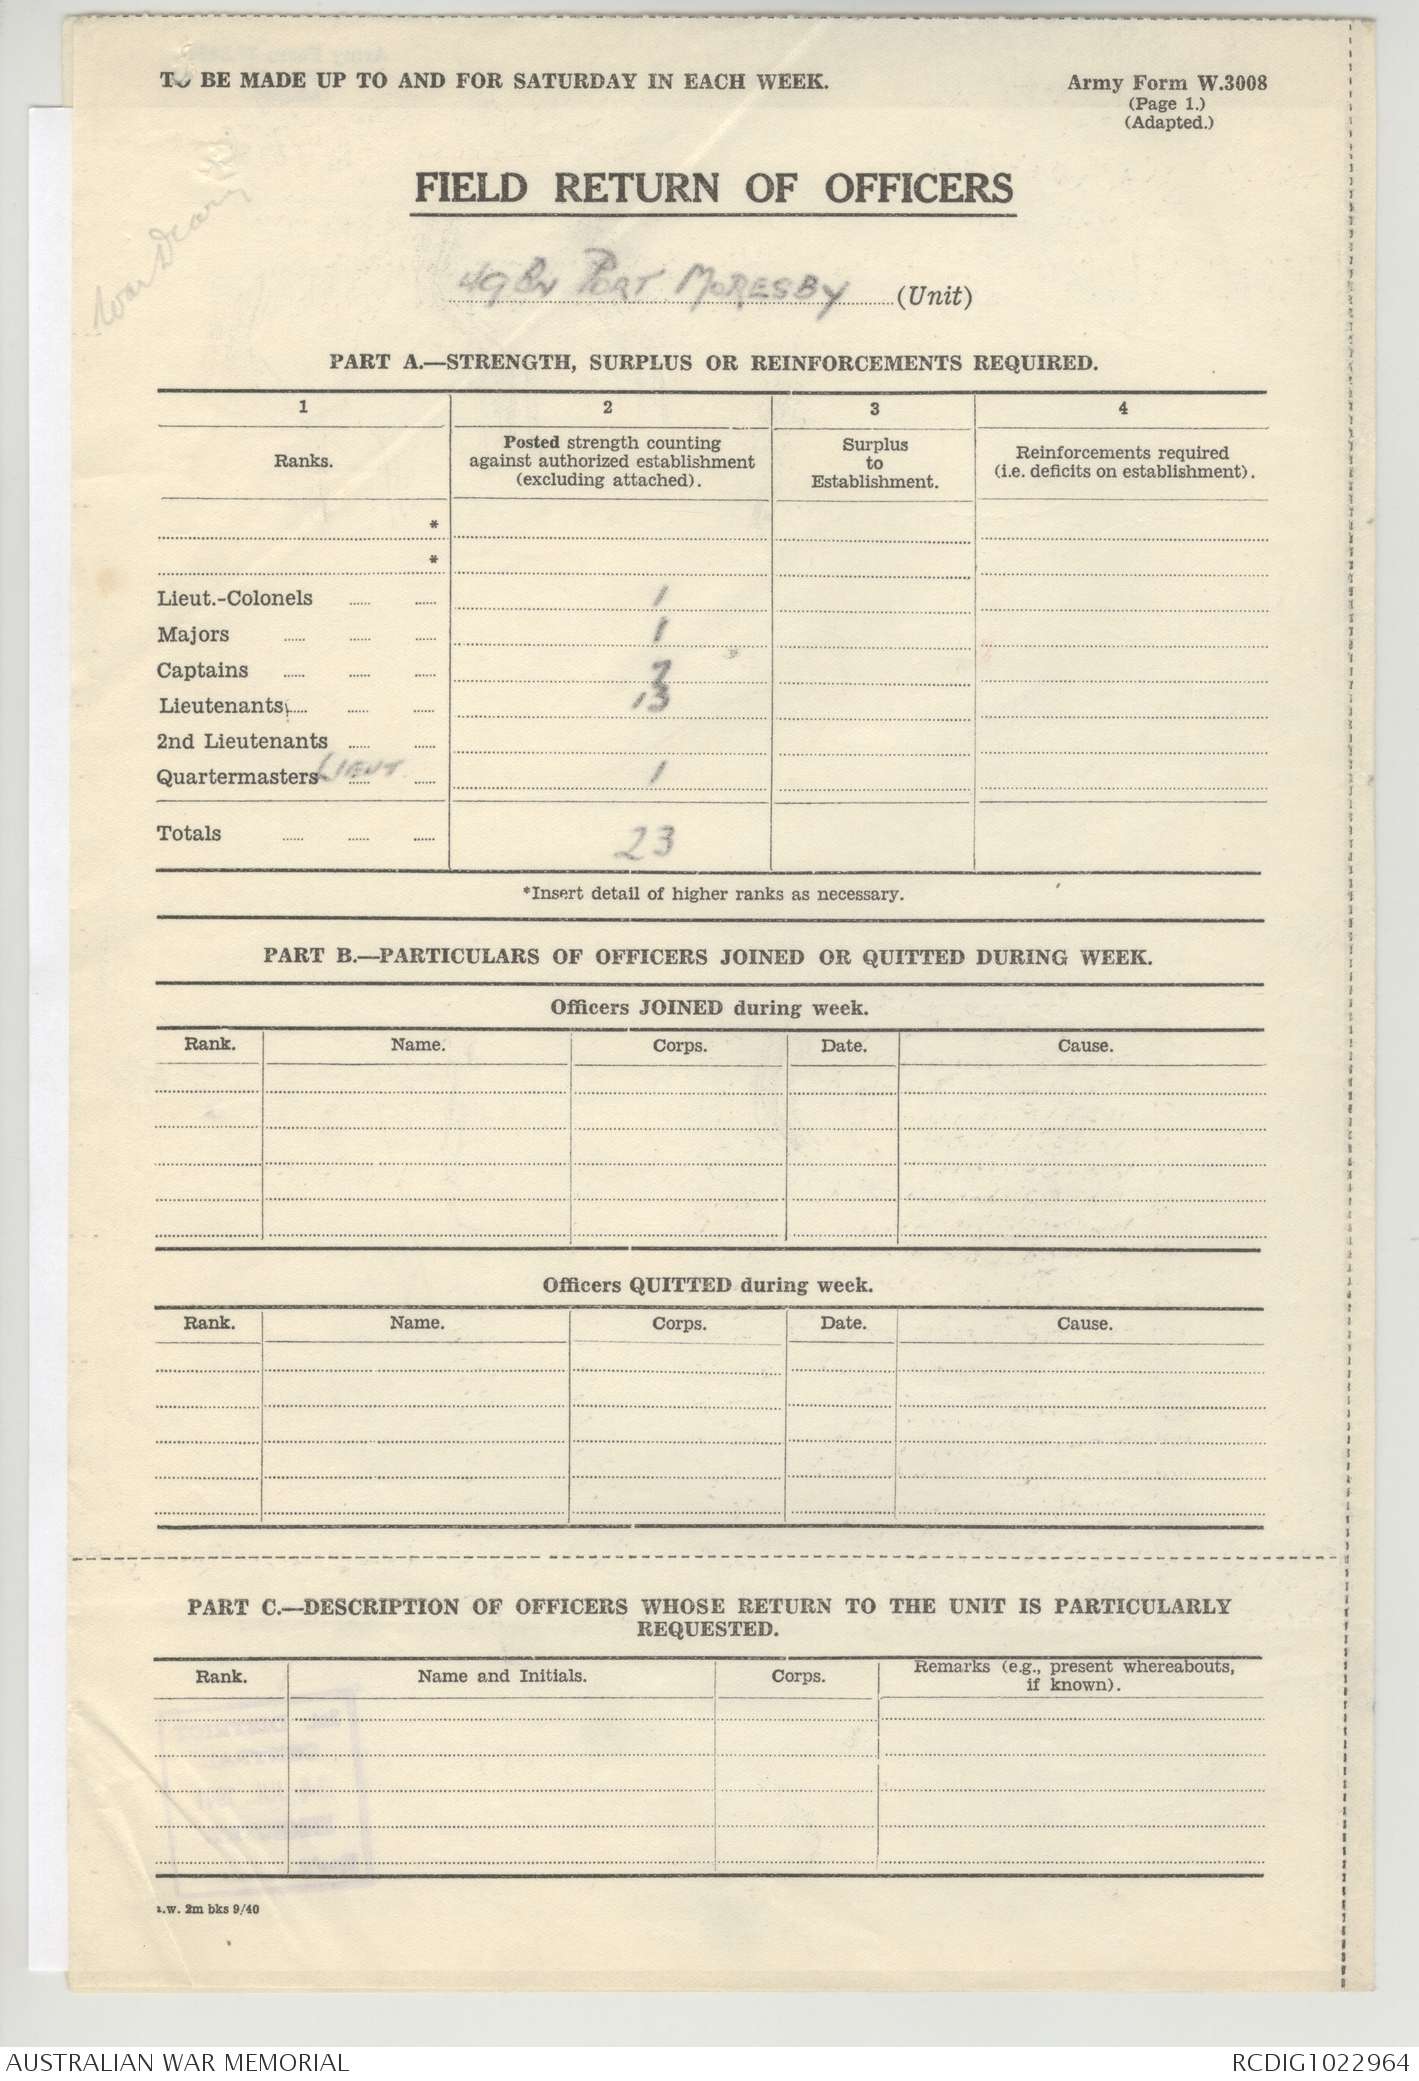 TO BE MADE UP TO AND FOR SATURDAY IN EACH WEEK.
Army Form W.3008
(Page 1.)
(Adapted.)
War Diary
FIELD RETURN OF OFFICERS
49 Bn PORT MORESBY (Unit)
PART A.—STRENGTH, SURPLUS OR REINFORCEMENTS REQUIRED.
1 2 3 4
Ranks. Posted strength counting against authorized establishment (excluding attached). Surplus to Establishment. Reinforcements required (i.e. deficits on establishment).
*
*
Lieut.-Colonels 1
Majors 1
Captains 7
Lieutenants 13
2nd Lieutenants
Quartermasters LIEUT 1
Totals 23
*Insert detail of higher ranks as necessary.
PART B.—PARTICULARS OF OFFICERS JOINED OR QUITTED DURING WEEK.
Officers JOINED during week.
Rank. Name. Corps. Date. Cause.
Officers QUITTED during week.
Rank. Name. Corps. Date. Cause.
PART C.—DESCRIPTION OF OFFICERS WHOSE RETURN TO THE UNIT IS PARTICULARLY
REQUESTED.
Rank. Name and Initials. Corps. Remarks (e.g., present whereabouts, if known).
.w. 2m bks 9/40
AUSTRALIAN WAR MEMORIAL
RCDIG1022964